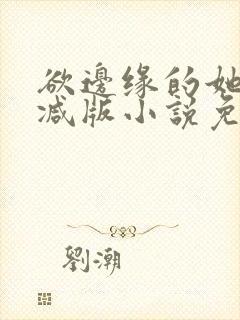 欲邊缘的她
减版小説免
劉潮